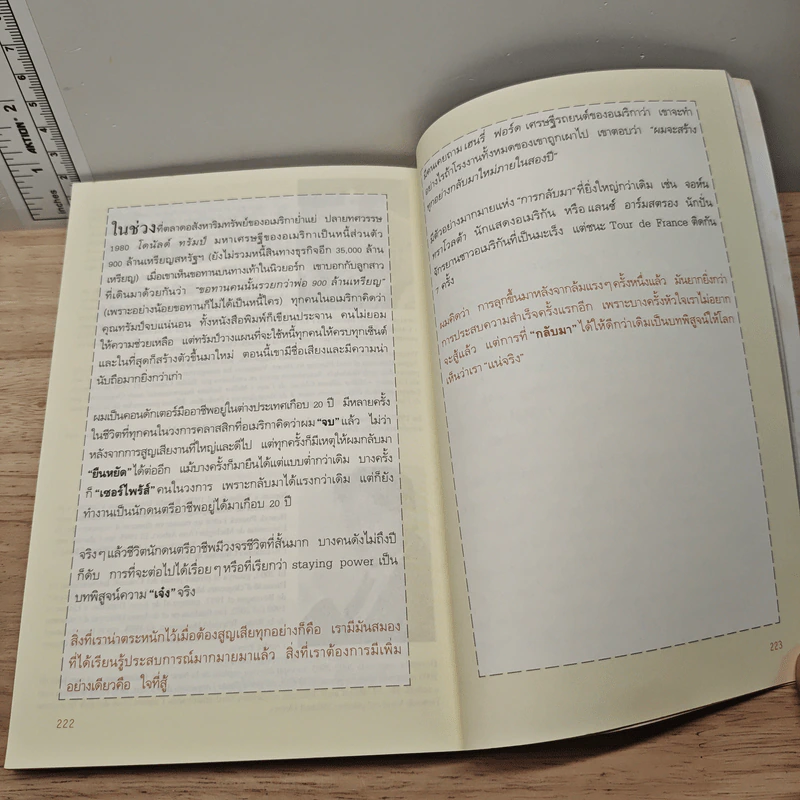 ในช่วงที่ตลาดอสังหาริมทรัพย์ของอเมริกาย่ำแย่ ปลายทศวรรษ
1980 โดนัลด์ ทรัมป์ มหาเศรษฐีของอเมริกาเป็นหนี้ส่วนตัว
900 ล้านเหรียญสหรัฐฯ (ยังไม่รวมหนี้สินทางธุรกิจอีก 35,000 ล้าน
เหรียญ) เมื่อเขาเห็นขอทานบนทางเท้าในนิวยอร์ก เขาบอกกับลูกสาว
ที่เดินมาด้วยกันว่า "ขอทานคนนั้นรวยกว่าพ่อ 900 ล้านเหรียญ"
(เพราะอย่างน้อยขอทานก็ไม่ได้เป็นหนี้ใคร) ทุกคนในอเมริกาคิดว่า
คุณทรัมป์จบแน่นอน ทั้งหนังสือพิมพ์ก็เขียนประจาน คนไม่ยอม
ให้ความช่วยเหลือ แต่ทรัมป์วางแผนที่จะใช้หนี้ทุกคนให้ครบทุกเซ็นต์
และในที่สุดก็สร้างตัวขึ้นมาใหม่ ตอนนี้เขามีชื่อเสียงและมีความน่า
นับถือมากยิ่งกว่าเก่า
ผมเป็นคอนดักเตอร์มืออาชีพอยู่ในต่างประเทศเกือบ 20 ปี มีหลายครั้ง
ในชีวิตที่ทุกคนในวงการคลาสสิกที่อเมริกาคิดว่าผม "จบ" แล้ว ไม่ว่า
หลังจากการสูญเสียงานที่ใหญ่และดีไป แต่ทุกครั้งก็มีเหตุให้ผมกลับมา
"ยืนหยัด" ได้ต่ออีก แม้บางครั้งก็มายืนได้แต่แบบต่ำกว่าเดิม บางครั้ง
ก็ "เซอร์ไพร้ส์" คนในวงการ เพราะกลับมาได้แรงกว่าเดิม แต่ก็ยัง
ทำงานเป็นนักดนตรีอาชีพอยู่ได้มาเกือบ 20 ปี
จริงๆ แล้วชีวิตนักดนตรีอาชีพมีวงจรชีวิตที่สั้นมาก บางคนดังไม่ถึงปี
ก็ดับ การที่จะต่อไปได้เรื่อยๆ หรือที่เรียกว่า staying power เป็น
บทพิสูจน์ความ "เจ๋ง" จริง
สิ่งที่เราน่าตระหนักไว้เมื่อต้องสูญเสียทุกอย่างก็คือ เรามีมันสมอง
ที่ได้เรียนรู้ประสบการณ์มากมายมาแล้ว สิ่งที่เราต้องการมีเพิ่ม
อย่างเดียวคือ ใจที่สู้
222
มีคนเคยถาม เฮนรี่ ฟอร์ด เศรษฐีรถยนต์ของอเมริกาว่า เขาจะทำ
อย่างไรถ้าโรงงานทั้งหมดของเขาถูกเผาไป เขาตอบว่า "ผมจะสร้าง
ทุกอย่างกลับมาใหม่ภายในสองปี"
มีตัวอย่างมากมายแห่ง "การกลับมา" ที่ยิ่งใหญ่กว่าเดิม เช่น จอห์น
ทราโวลต้า นักแสดงอเมริกัน หรือ แลนซ์ อาร์มสตรอง นักปั่น
จักรยานชาวอเมริกันที่เป็นมะเร็ง แต่ชนะ Tour de France ติดกัน
7 ครั้ง
ผมคิดว่า การลุกขึ้นมาหลังจากล้มแรงๆ ครั้งหนึ่งแล้ว มันยากยิ่งกว่า
การประสบความสำเร็จครั้งแรกอีก เพราะบางครั้งหัวใจเราไม่อยาก
จะสู้แล้ว แต่การที่ "กลับมา" ได้ให้ดีกว่าเดิมเป็นบทพิสูจน์ให้โลก
เห็นว่าเรา "แน่จริง"
223
ACTION
inches
1
2